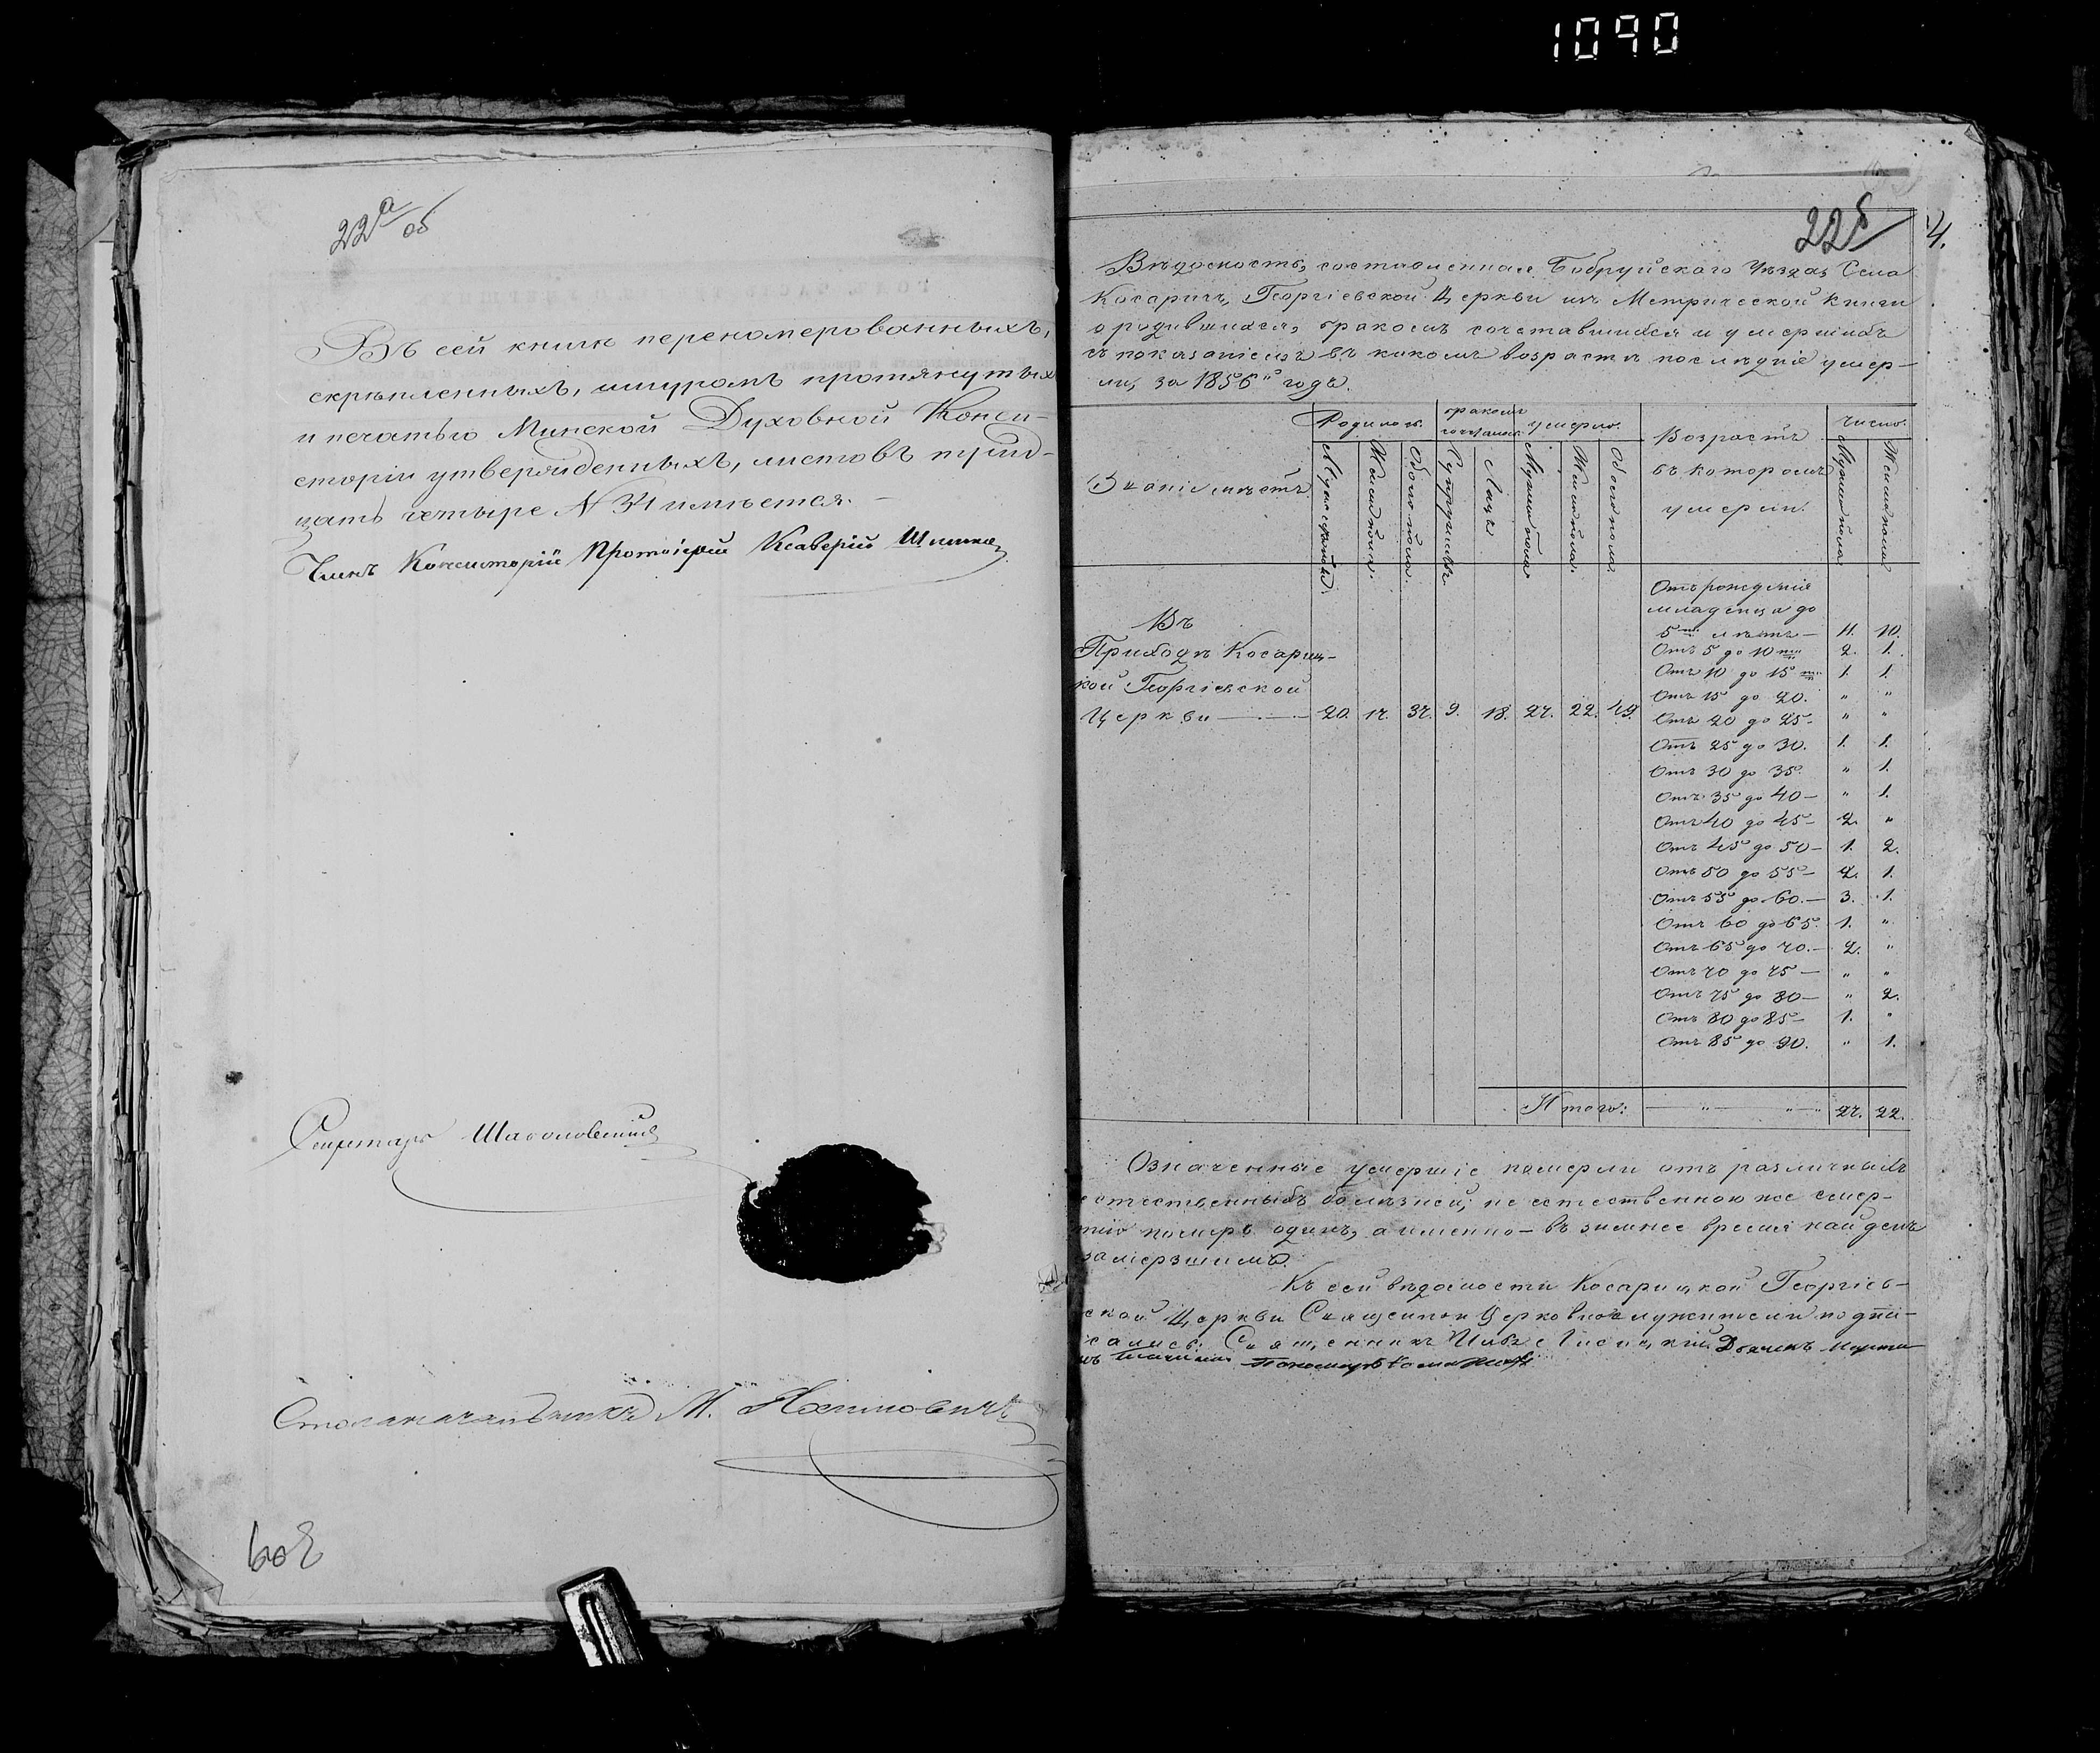 1090
22а/об
Въ сей книгѣ перенумерованныхъ,
скрѣпленныхъ, шнуромъ протянутыхъ
и печатью Минской Духовной Конси-
сторіи утвержденныхъ, листовъ трид-
цать четыре N 34 имѣется. —
Членъ Консисторіи Протоіерей Ксаверій
Секретарь
Столоначальникъ М.
22б
4.
Вѣдомость, составленная Бобруйскаго Уѣзда, Села
Косаричъ, Георгіевской Церкви изъ Метрической книги
о родившихся, бракомъ сочетавшихся и умершихъ
съ показаніемъ въ какомъ возрастѣ послѣдніе умер-
ли, за 1856й годъ.
Званіе мѣстъ
Родилось.
бракомъ
сочетались.
умерло.
Возрастъ
въ которомъ
умерли.
число.
Мужеска пола.
Женска пола.
Обоего пола.
Супружествъ.
Лицъ
Мужска пола
Женска пола.
Обоего пола.
Мужска пола
Женска пола
Въ
Приходѣ Косариц-
кой Георгіевской
Церкви — — — 20. 17. 37. 9. 18. 27. 22. 49.
Отъ рожденія
младенца до
5ти лѣтъ — 11. 10.
Отъ 5 до 10ти 2. 1.
Отъ 10 до 15ти 1. 1.
Отъ 15 до 20. " "
Отъ 20 до 25 - " "
Отъ 25 до 30. 1. 1.
Отъ 30 до 35. " 1.
Отъ 35 до 40 — " 1.
Отъ 40 до 45 - 2. "
Отъ 45 до 50 — 1. 2.
Отъ 50 до 55 — 2. 1.
Отъ 55 до 60. — 3. 1.
Отъ 60 до 65. 1. "
Отъ 65 до 70. — 2. "
Отъ 70 до 75 — " "
Отъ 75 до 80 — " 2.
Отъ 80 до 85 — 1. "
Отъ 85 до 90. " 1.
Итого: — " — " — 27. 22.
Означенные умершіе померли отъ различныхъ
естественныхъ болѣзней, не естественною же смер-
тію померъ одинъ, а именно — въ зимнее время найденъ
замерзшимъ.
Къ сей вѣдомости Косарицкой Георгіев-
ской Церкви Священно и Церковнослужители подпи-
сались: Священникъ Дьячекъ
Пономарь